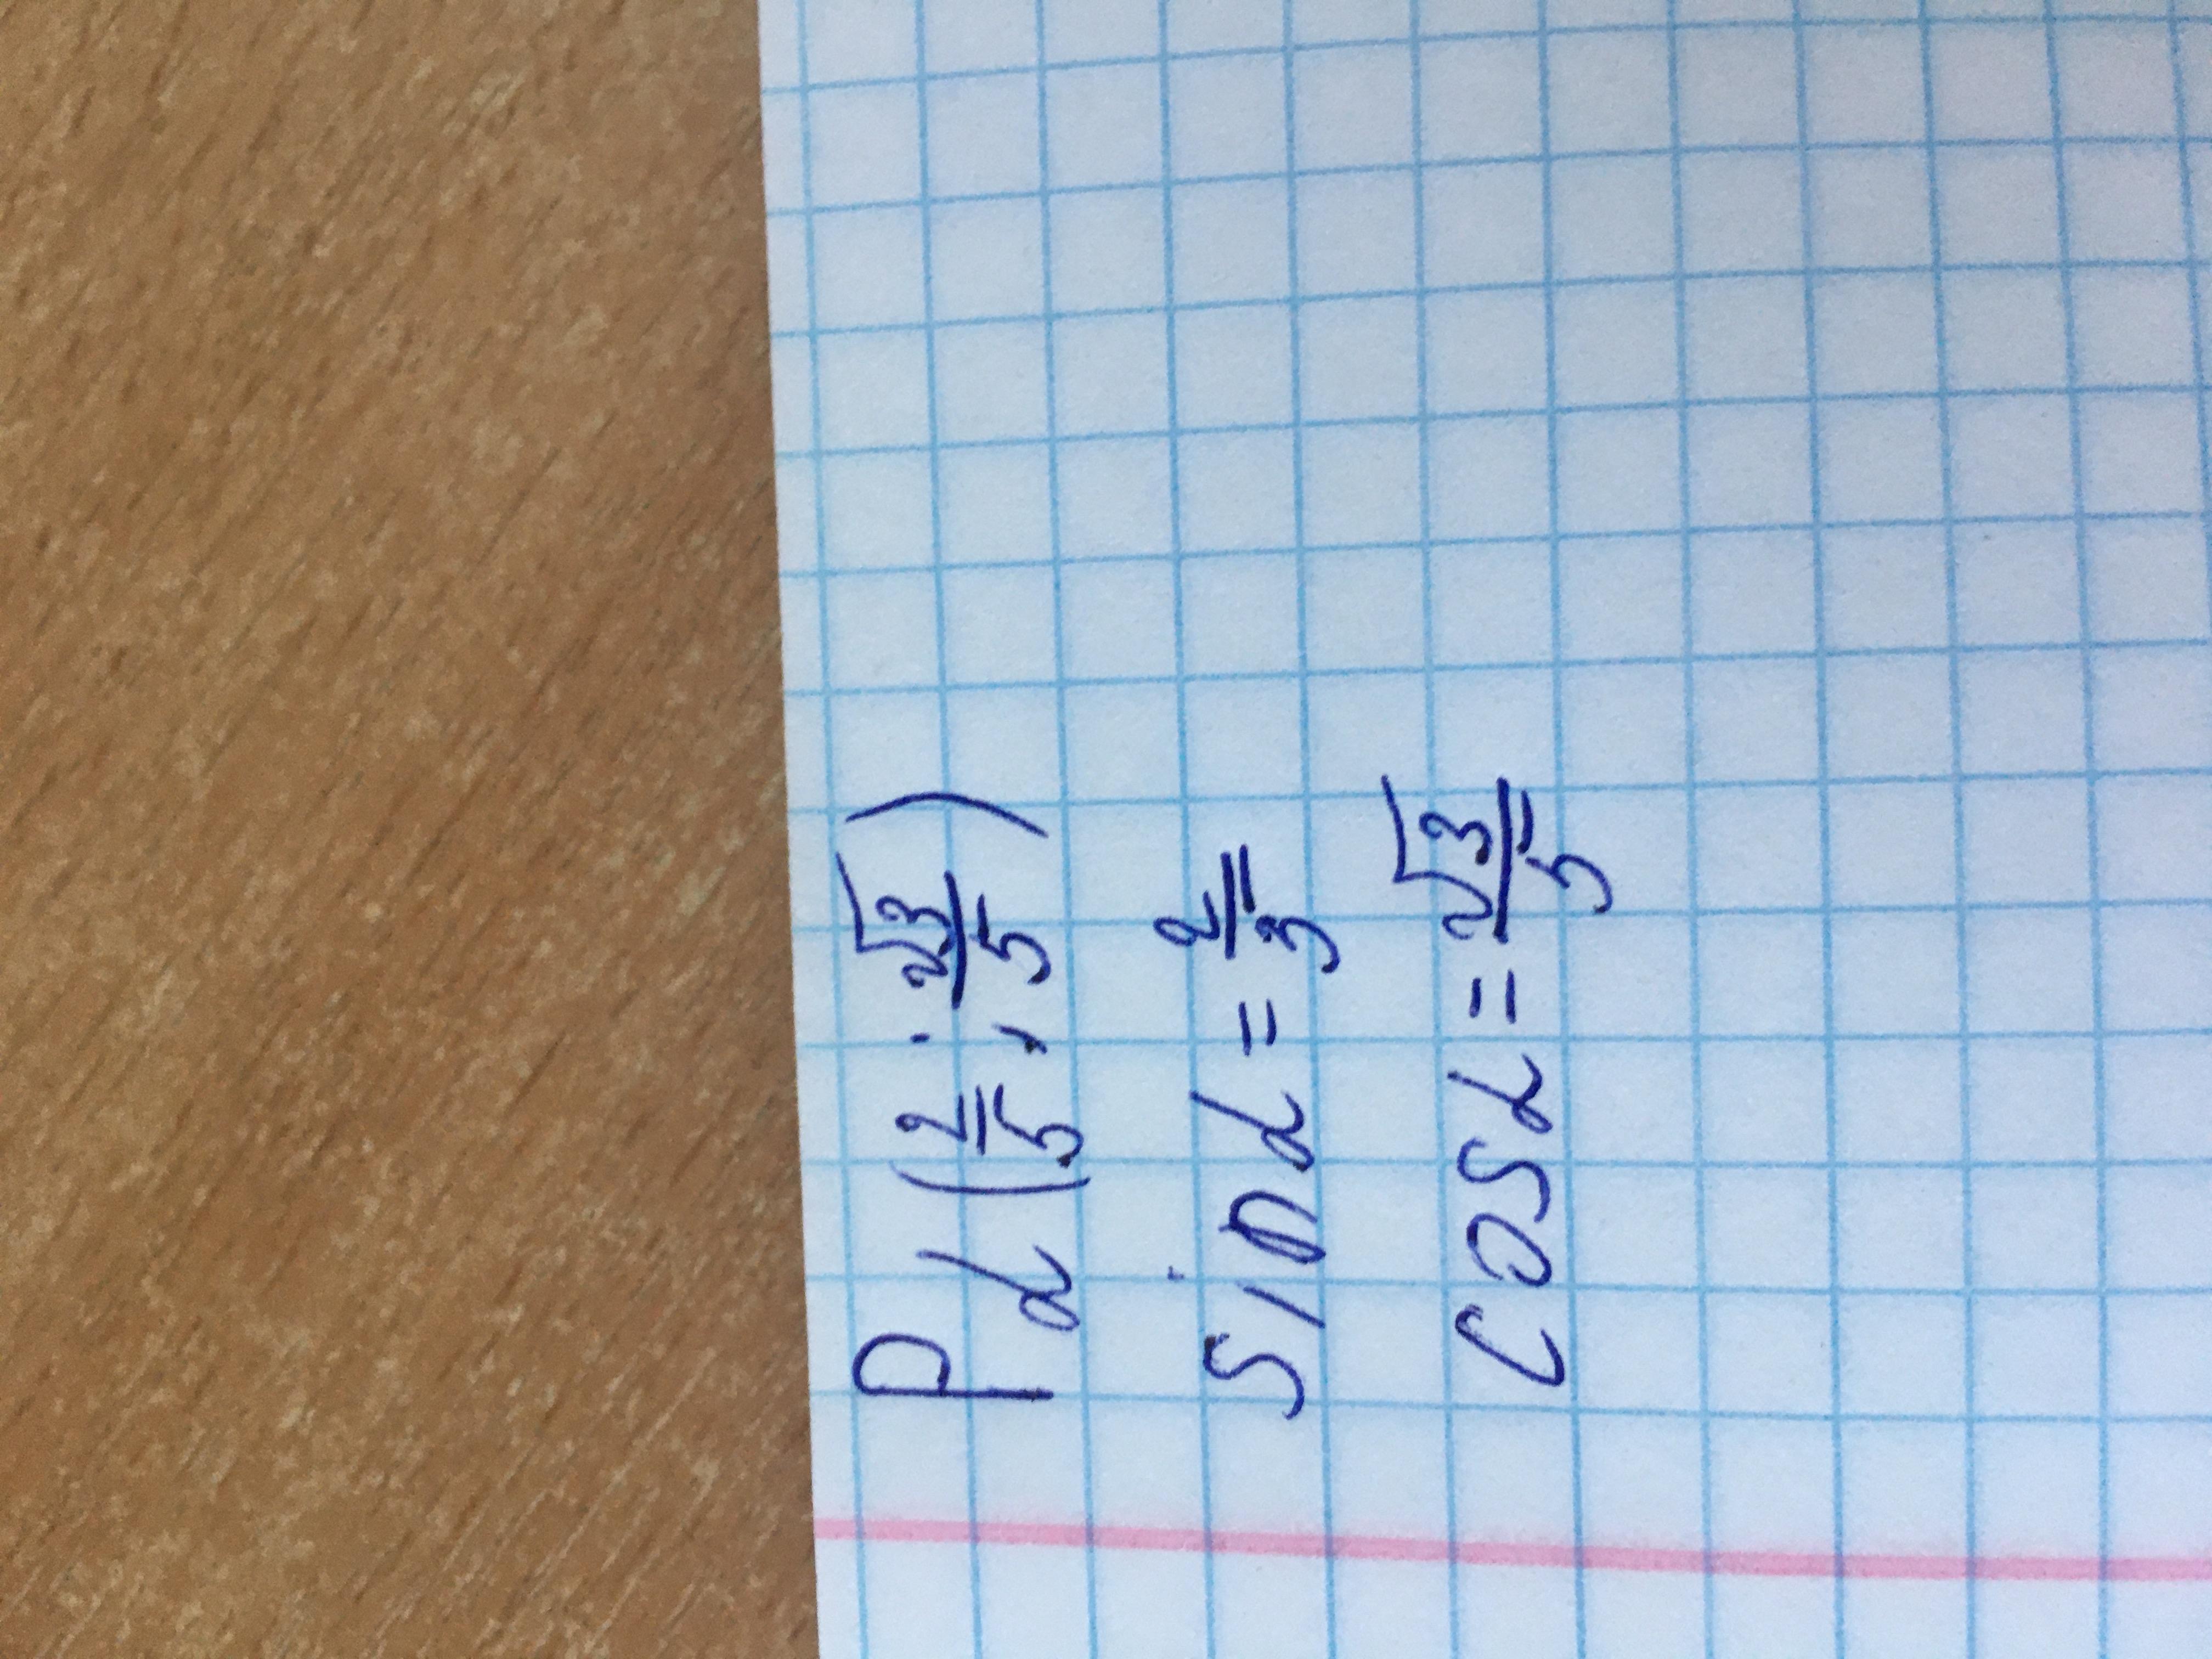 Pα(2/5; √3/5)
sin α = 2/3
cos α = √3/5